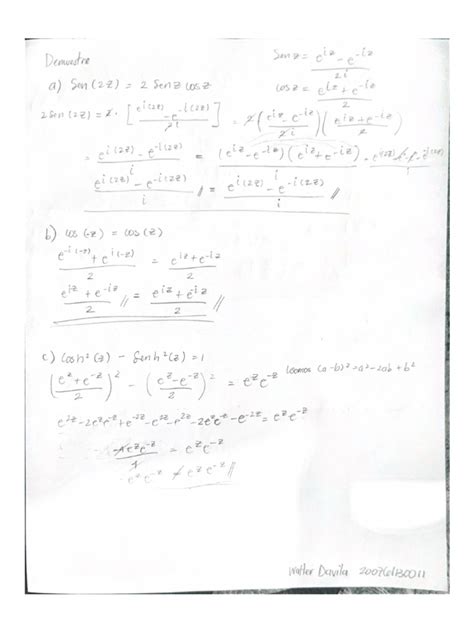 Demuestre
Sen z = (e^{iz} - e^{-iz})/2i
a) Sen (2z) = 2 Sen z cos z
cos z = (e^{iz} + e^{-iz})/2
2 Sen (2z) = 2 · [(e^{i(2z)} - e^{-i(2z)})/2i] = 2 ((e^{iz} - e^{-iz})/2i) ((e^{iz} + e^{-iz})/2)
= (e^{i(2z)} - e^{-i(2z)})/i = (e^{iz} - e^{-iz})(e^{iz} + e^{-iz})/i
(e^{i(2z)} - e^{-i(2z)})/i // = (e^{i(2z)} - e^{-i(2z)})/i //
b) cos (-z) = cos (z)
(e^{-i(-z)} + e^{i(-z)})/2 = (e^{iz} + e^{-iz})/2
(e^{iz} + e^{-iz})/2 // = (e^{iz} + e^{-iz})/2 //
c) Cosh² (z) - Senh² (z) = 1
((e^z + e^{-z})/2)² - ((e^z - e^{-z})/2)² = e^z e^{-z}
(a-b)² = a² - 2ab + b²
e^{2z} - 2e^z e^{-z} + e^{-2z} - e^{2z} - 2e^z e^{-z} - e^{-2z} = e^z e^{-z}
4e^z e^{-z}/4 = e^z e^{-z}
e^z e^{-z} ≠ e^z e^{-z} //
Walter Davila